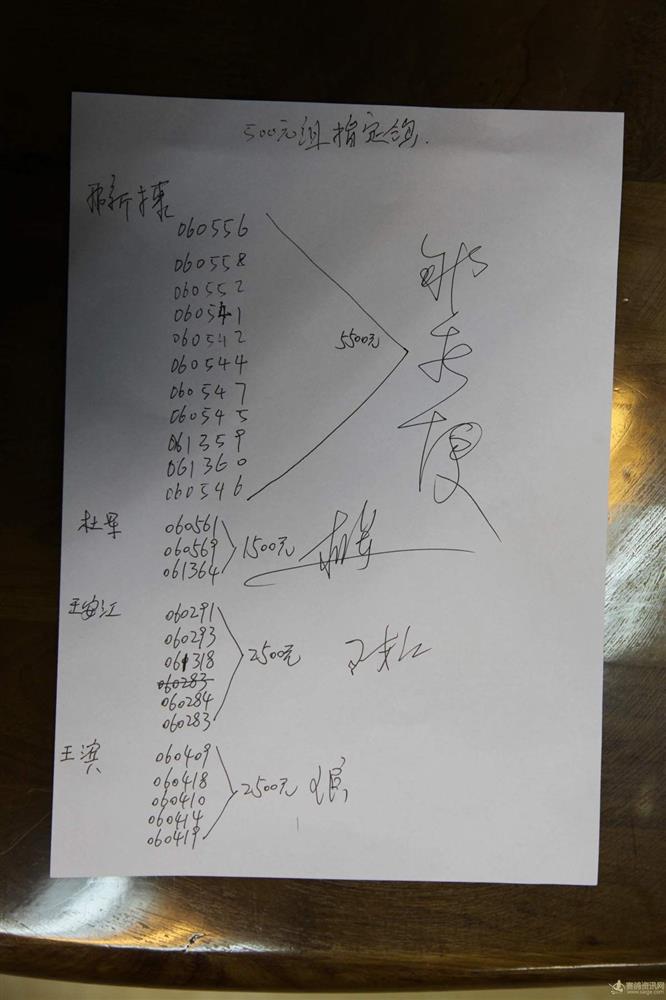 500元组指定鸽.
060556
060558
060552
060541
060542
060544
060547
060545
061359
061360
060546
5500元
杜军
060561
060569
061364
1500元
王安江
060291
060293
061318
060283
060284
060283
2500元
王滨
060409
060418
060410
060414
060419
2500元
赛鸽资讯网
www.saige.com